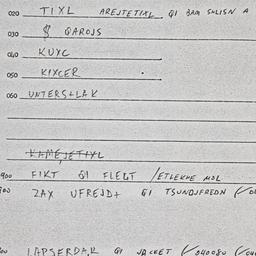 020 TIXL AREJTETIXL GI BAR SKLISN A
030 $ GAROJS
040 KUXC
050 KIXCER
060 UNTERS+LAK
KAMEJETIXL
900 FIKT GI FLEGT /ETLEKHE MOL
ZAX UFREJD+ GI TSUNDJFREDN
LAPSERDAK GI JACKET (040080